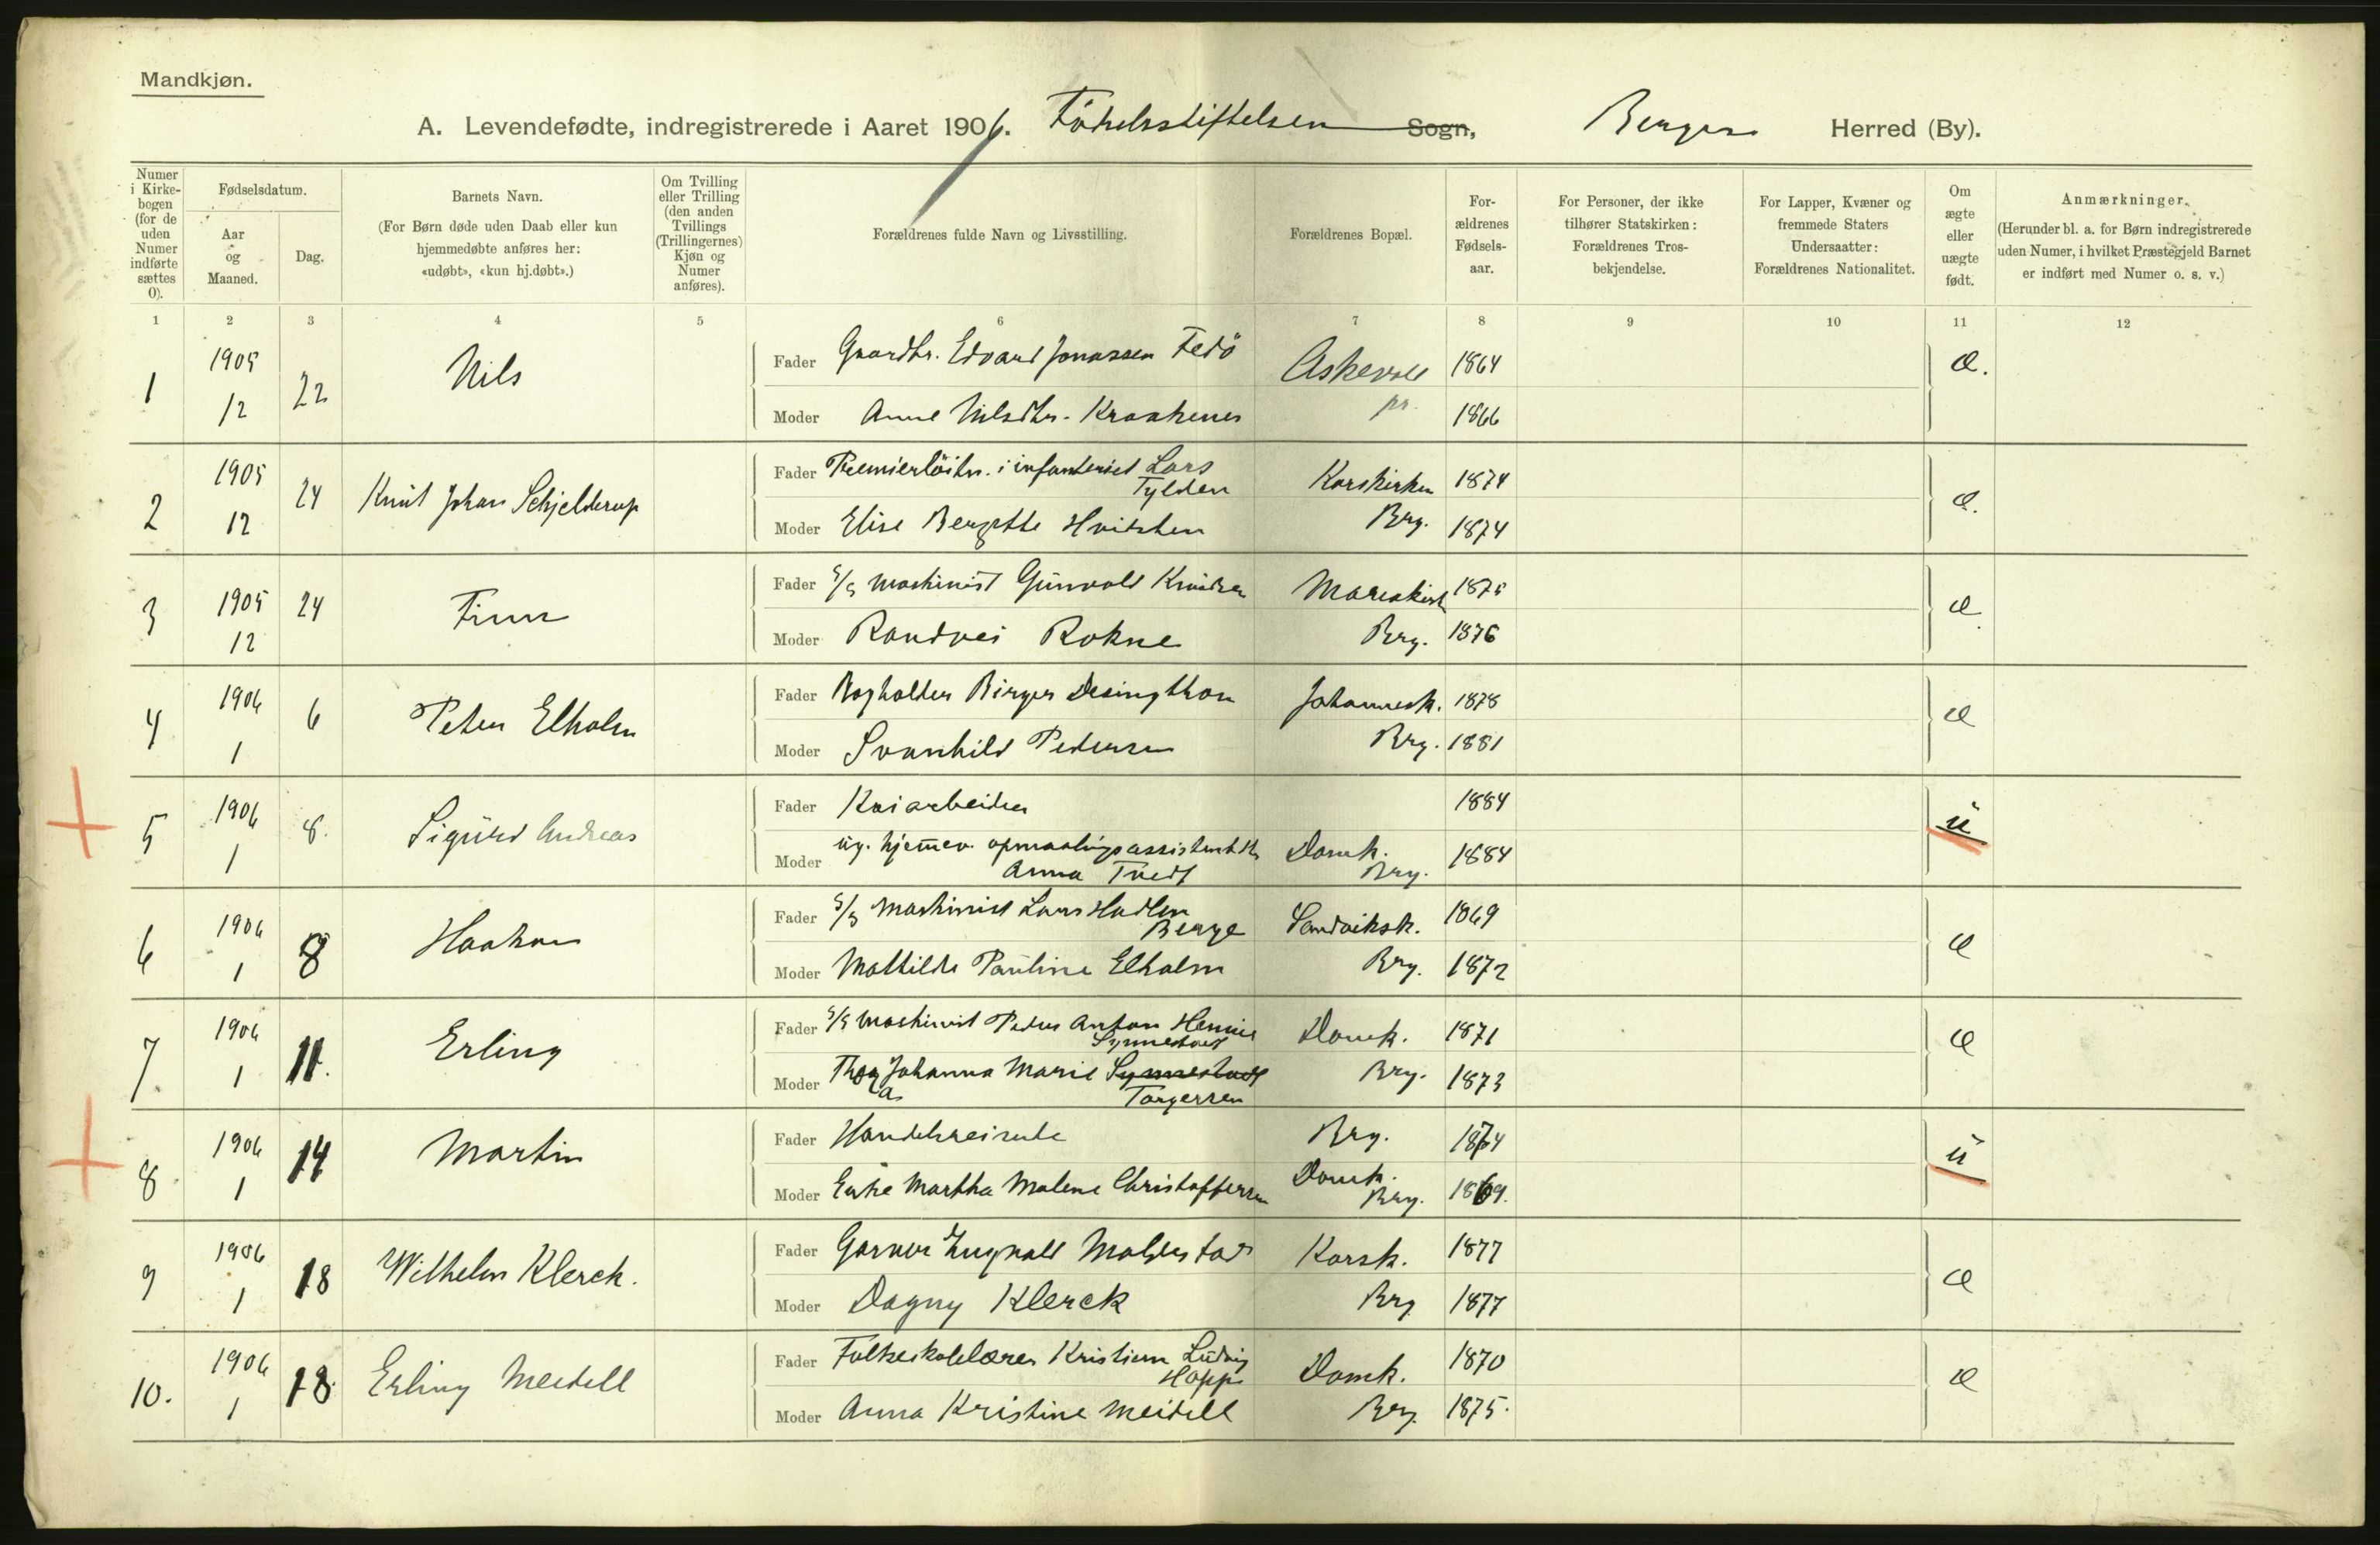 Mandkjøn.
A. Levendefødte, indregistrerede i Aaret 1906. Födselsstiftelsen Sogn, Bergen Herred (By).
Numer i Kirke-bogen (for de uden Numer indførte sættes 0).
Fødselsdatum.
Aar og Maaned.
Dag.
Barnets Navn.
(For Børn døde uden Daab eller kun hjemmedøbte anføres her: «udøbt», «kun hj.døbt».)
Om Tvilling eller Trilling (den anden Tvillings (Trillingernes) Kjøn og Numer anføres).
Forældrenes fulde Navn og Livsstilling.
Forældrenes Bopæl.
For-ældrenes Fødsels-aar.
For Personer, der ikke tilhører Statskirken: Forældrenes Tros-bekjendelse.
For Lapper, Kvæner og fremmede Staters Undersaatter: Forældrenes Nationalitet.
Om ægte eller uægte født.
Anmærkninger.
(Herunder bl. a. for Børn indregistrerede uden Numer, i hvilket Præstegjeld Barnet er indført med Numer o. s. v.)
1 2 3 4 5 6 7 8 9 10 11 12
1 1905 12 22 Nils
Fader Gaardbr. Edvard Jonassen Fedö Askevold 1864 æ.
Moder Anne Nilsdtr. Kraakenes pr. 1866
2 1905 12 24 Knut Johan Schjelderup
Fader Premierlöitn. i infanteriet Lars Tylden Korskirken 1874 æ.
Moder Elise Bergitte Hvitsten Brg. 1874
3 1905 12 24 Finn
Fader S/S maskinist Gunvald Knudsen Mariakirk 1875 æ.
Moder Randvei Rokne Brg. 1876
4 1906 1 6 Peter Elholm
Fader Bogholder Birger Desingthon Johannesk. 1878 æ
Moder Svanhild Pedersen Brg. 1881
5 1906 1 8. Sigurd Andreas
Fader Kaiarbeider 1884 u
Moder ug. hjemmev. opmaalingsassistentdtr Anna Tvedt Domk. Brg. 1884
6 1906 1 8 Haakon
Fader S/S Maskinist Lars Hadlen Berge Sandviksk. 1869 æ
Moder Mathilde Pauline Elholm Brg. 1872
7 1906 1 11. Erling
Fader S/S Maskinist Peder Anton Henrie Synnestvedt Domk. 1871 æ
Moder Thora Johanna Marie Synnestvedt Torgersen Brg. 1873
8 1906 1 14 Martin
Fader Handelsreisende Brg. 1874 u
Moder Enke Martha Malene Christoffersen Domk. Brg. 1869.
9 1906 1 18 Wilhelm Klerck.
Fader Garver Ingvald Mohlestad Korsk. 1877 æ
Moder Dagny Klerck Brg 1877
10. 1906 1 18. Erling Meidell
Fader Folkeskolelærer Kristian Ludvig Hopp Domk. 1870 æ
Moder Anna Kristine Meidell Brg. 1875.